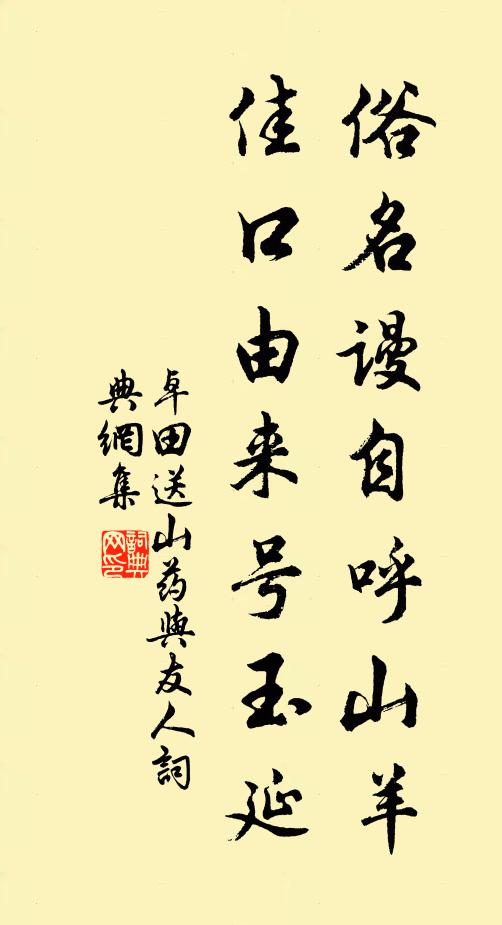 俗名谩自呼山羊
佳口由来号玉延
卓田送山药與友人詞
典網集
詞典网印